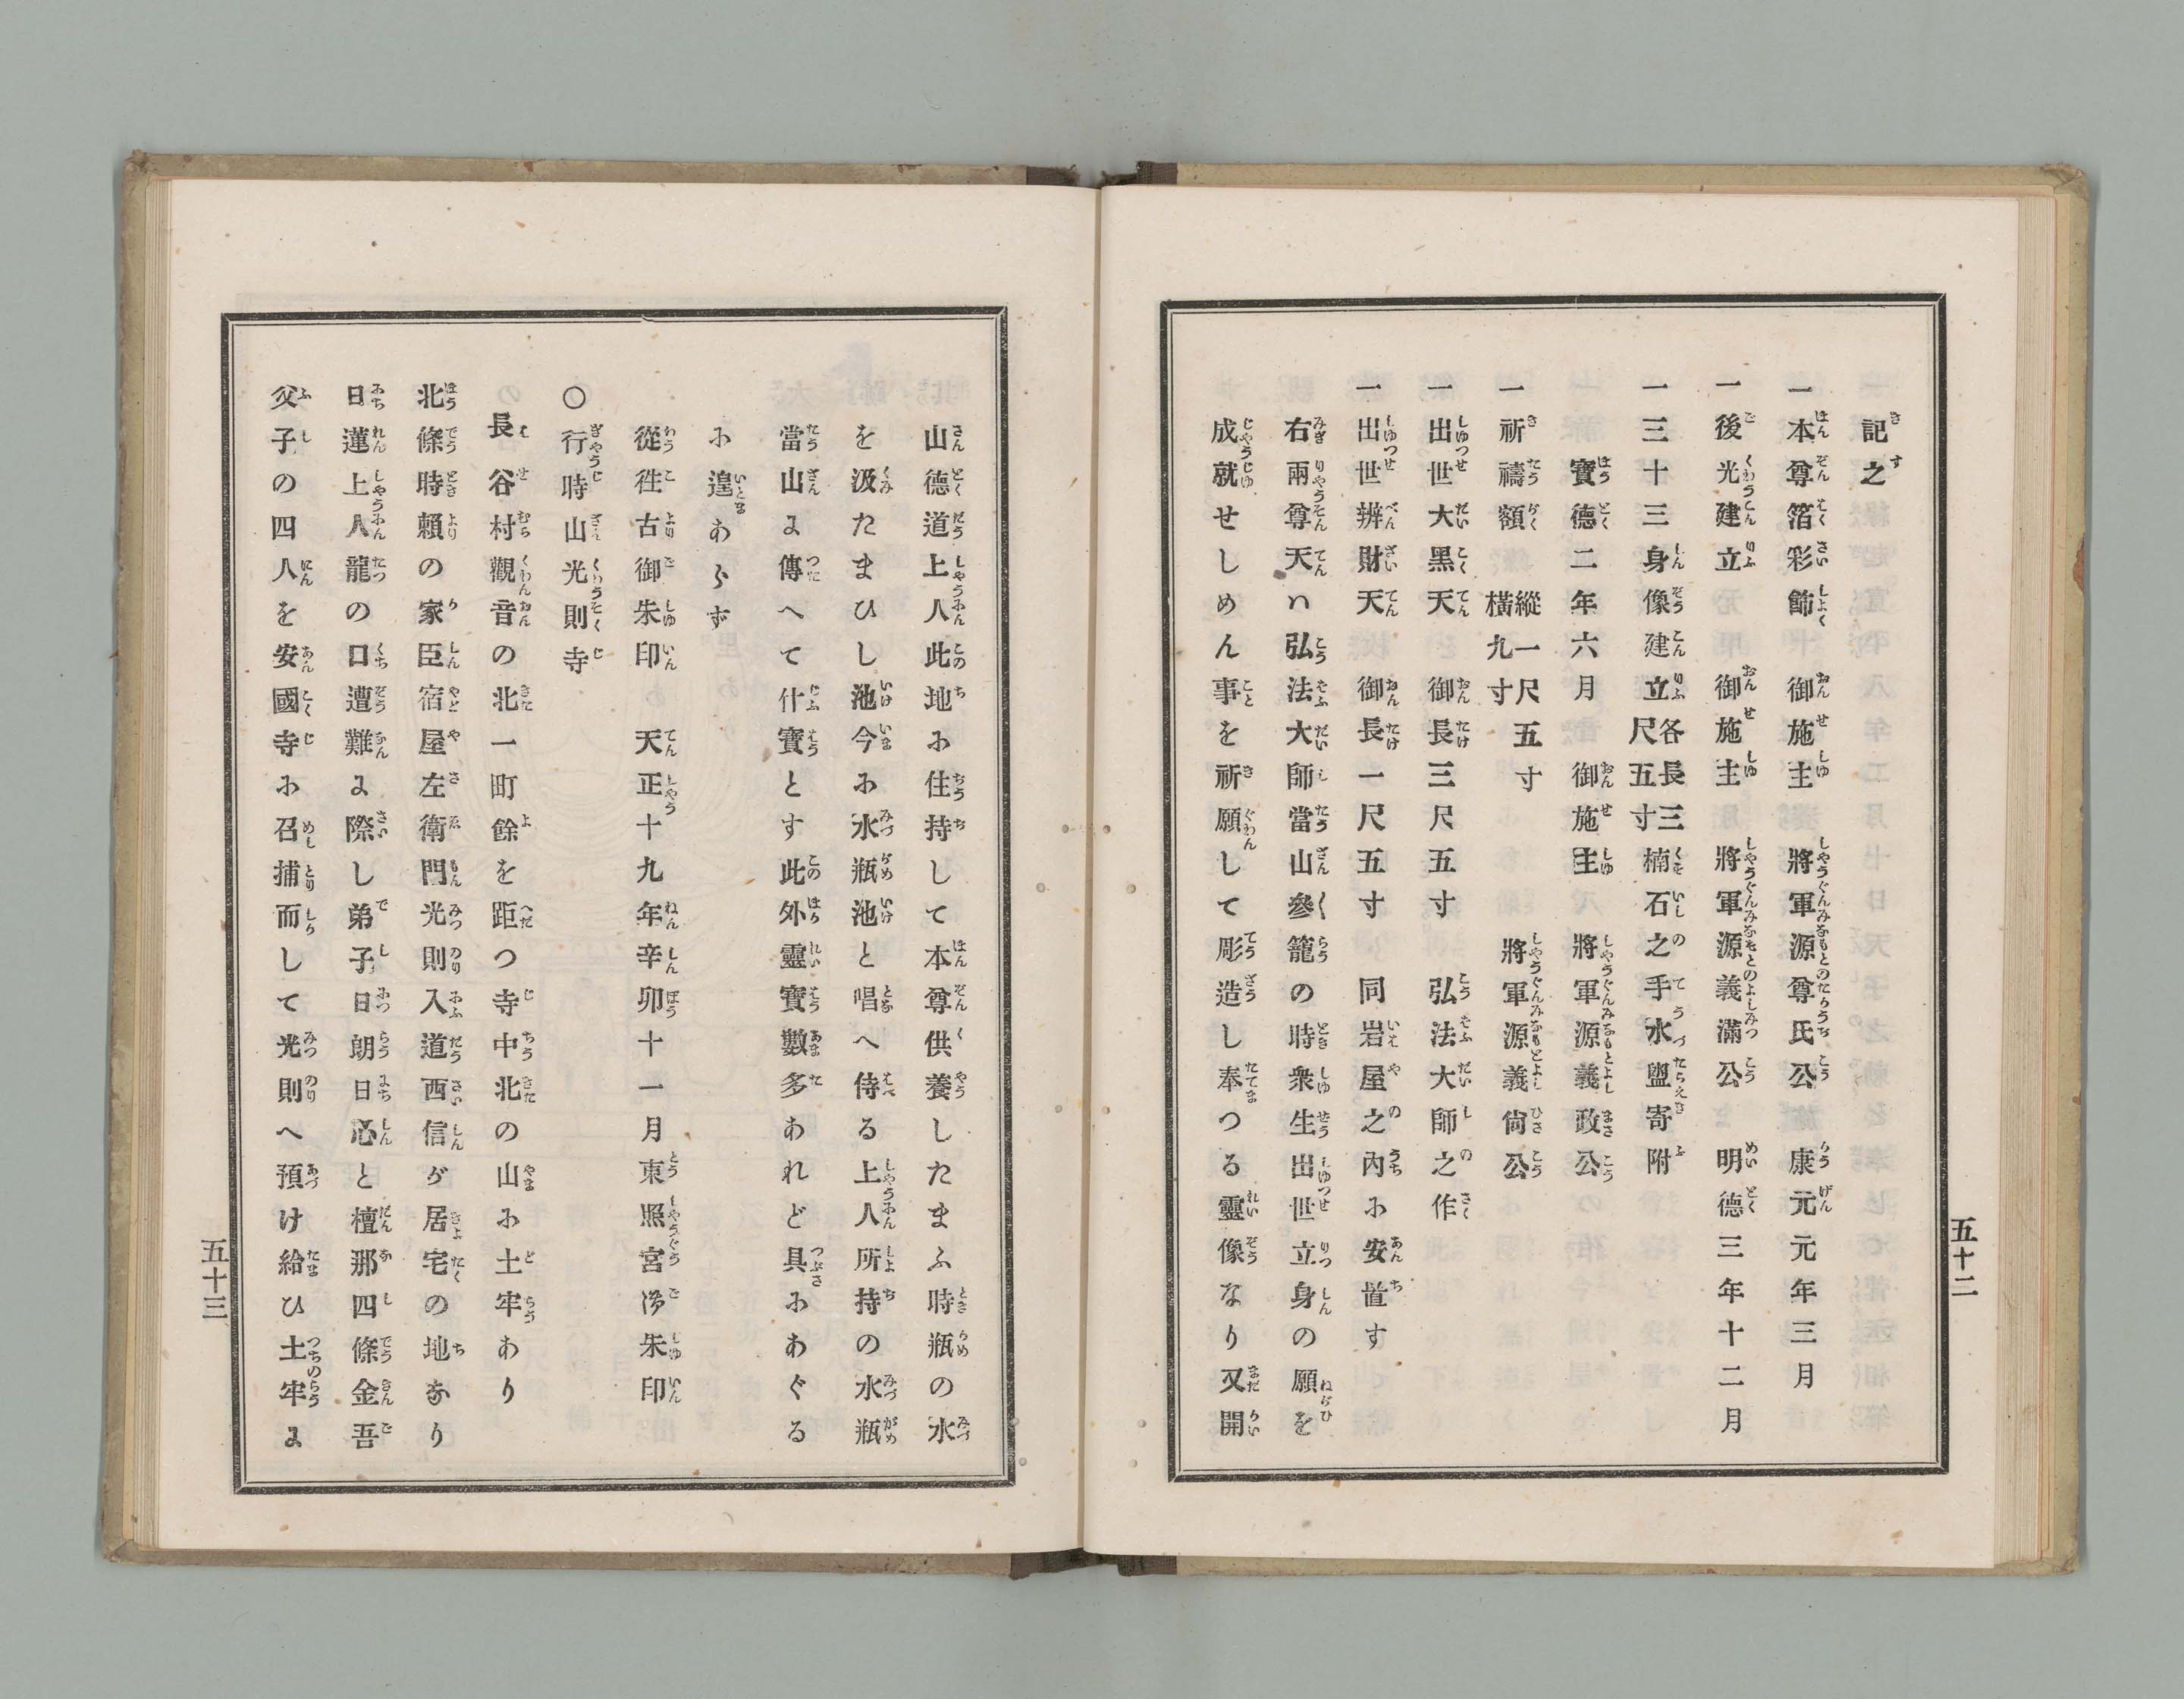 記之
一本尊箔彩飾　御施主　將軍源尊氏公　康元元年三月
一後光建立　御施主　將軍源義滿公　明德三年十二月
一三十三身像建立各長三尺五寸楠石之手水盥寄附
寶德二年六月　御施主　將軍源義政公
一祈禱額縱一尺五寸橫九寸　將軍源義尙公
一出世大黑天　御長三尺五寸　弘法大師之作
一出世辨財天　御長一尺五寸　同岩屋之內に安置す
右兩尊天ハ弘法大師當山參籠の時衆生出世立身の願を
成就せしめん事を祈願して彫造し奉つる靈像なり又開
五十二
山德道上人此地に住持して本尊供養したまふ時瓶の水
を汲たまひし池今に水瓶池と唱へ侍る上人所持の水瓶
當山に傳へて什寶とす此外靈寶數多あれど具にあぐる
に遑あらず
從徃古御朱印　天正十九年辛卯十一月東照宮御朱印
○行時山光則寺
長谷村觀音の北一町餘を距つ寺中北の山に土牢あり
北條時賴の家臣宿屋左衛門光則入道西信が居宅の地なり
日蓮上人龍の口遭難に際し弟子日朗日心と檀那四條金吾
父子の四人を安國寺に召捕而して光則へ預け給ひ土牢に
五十三